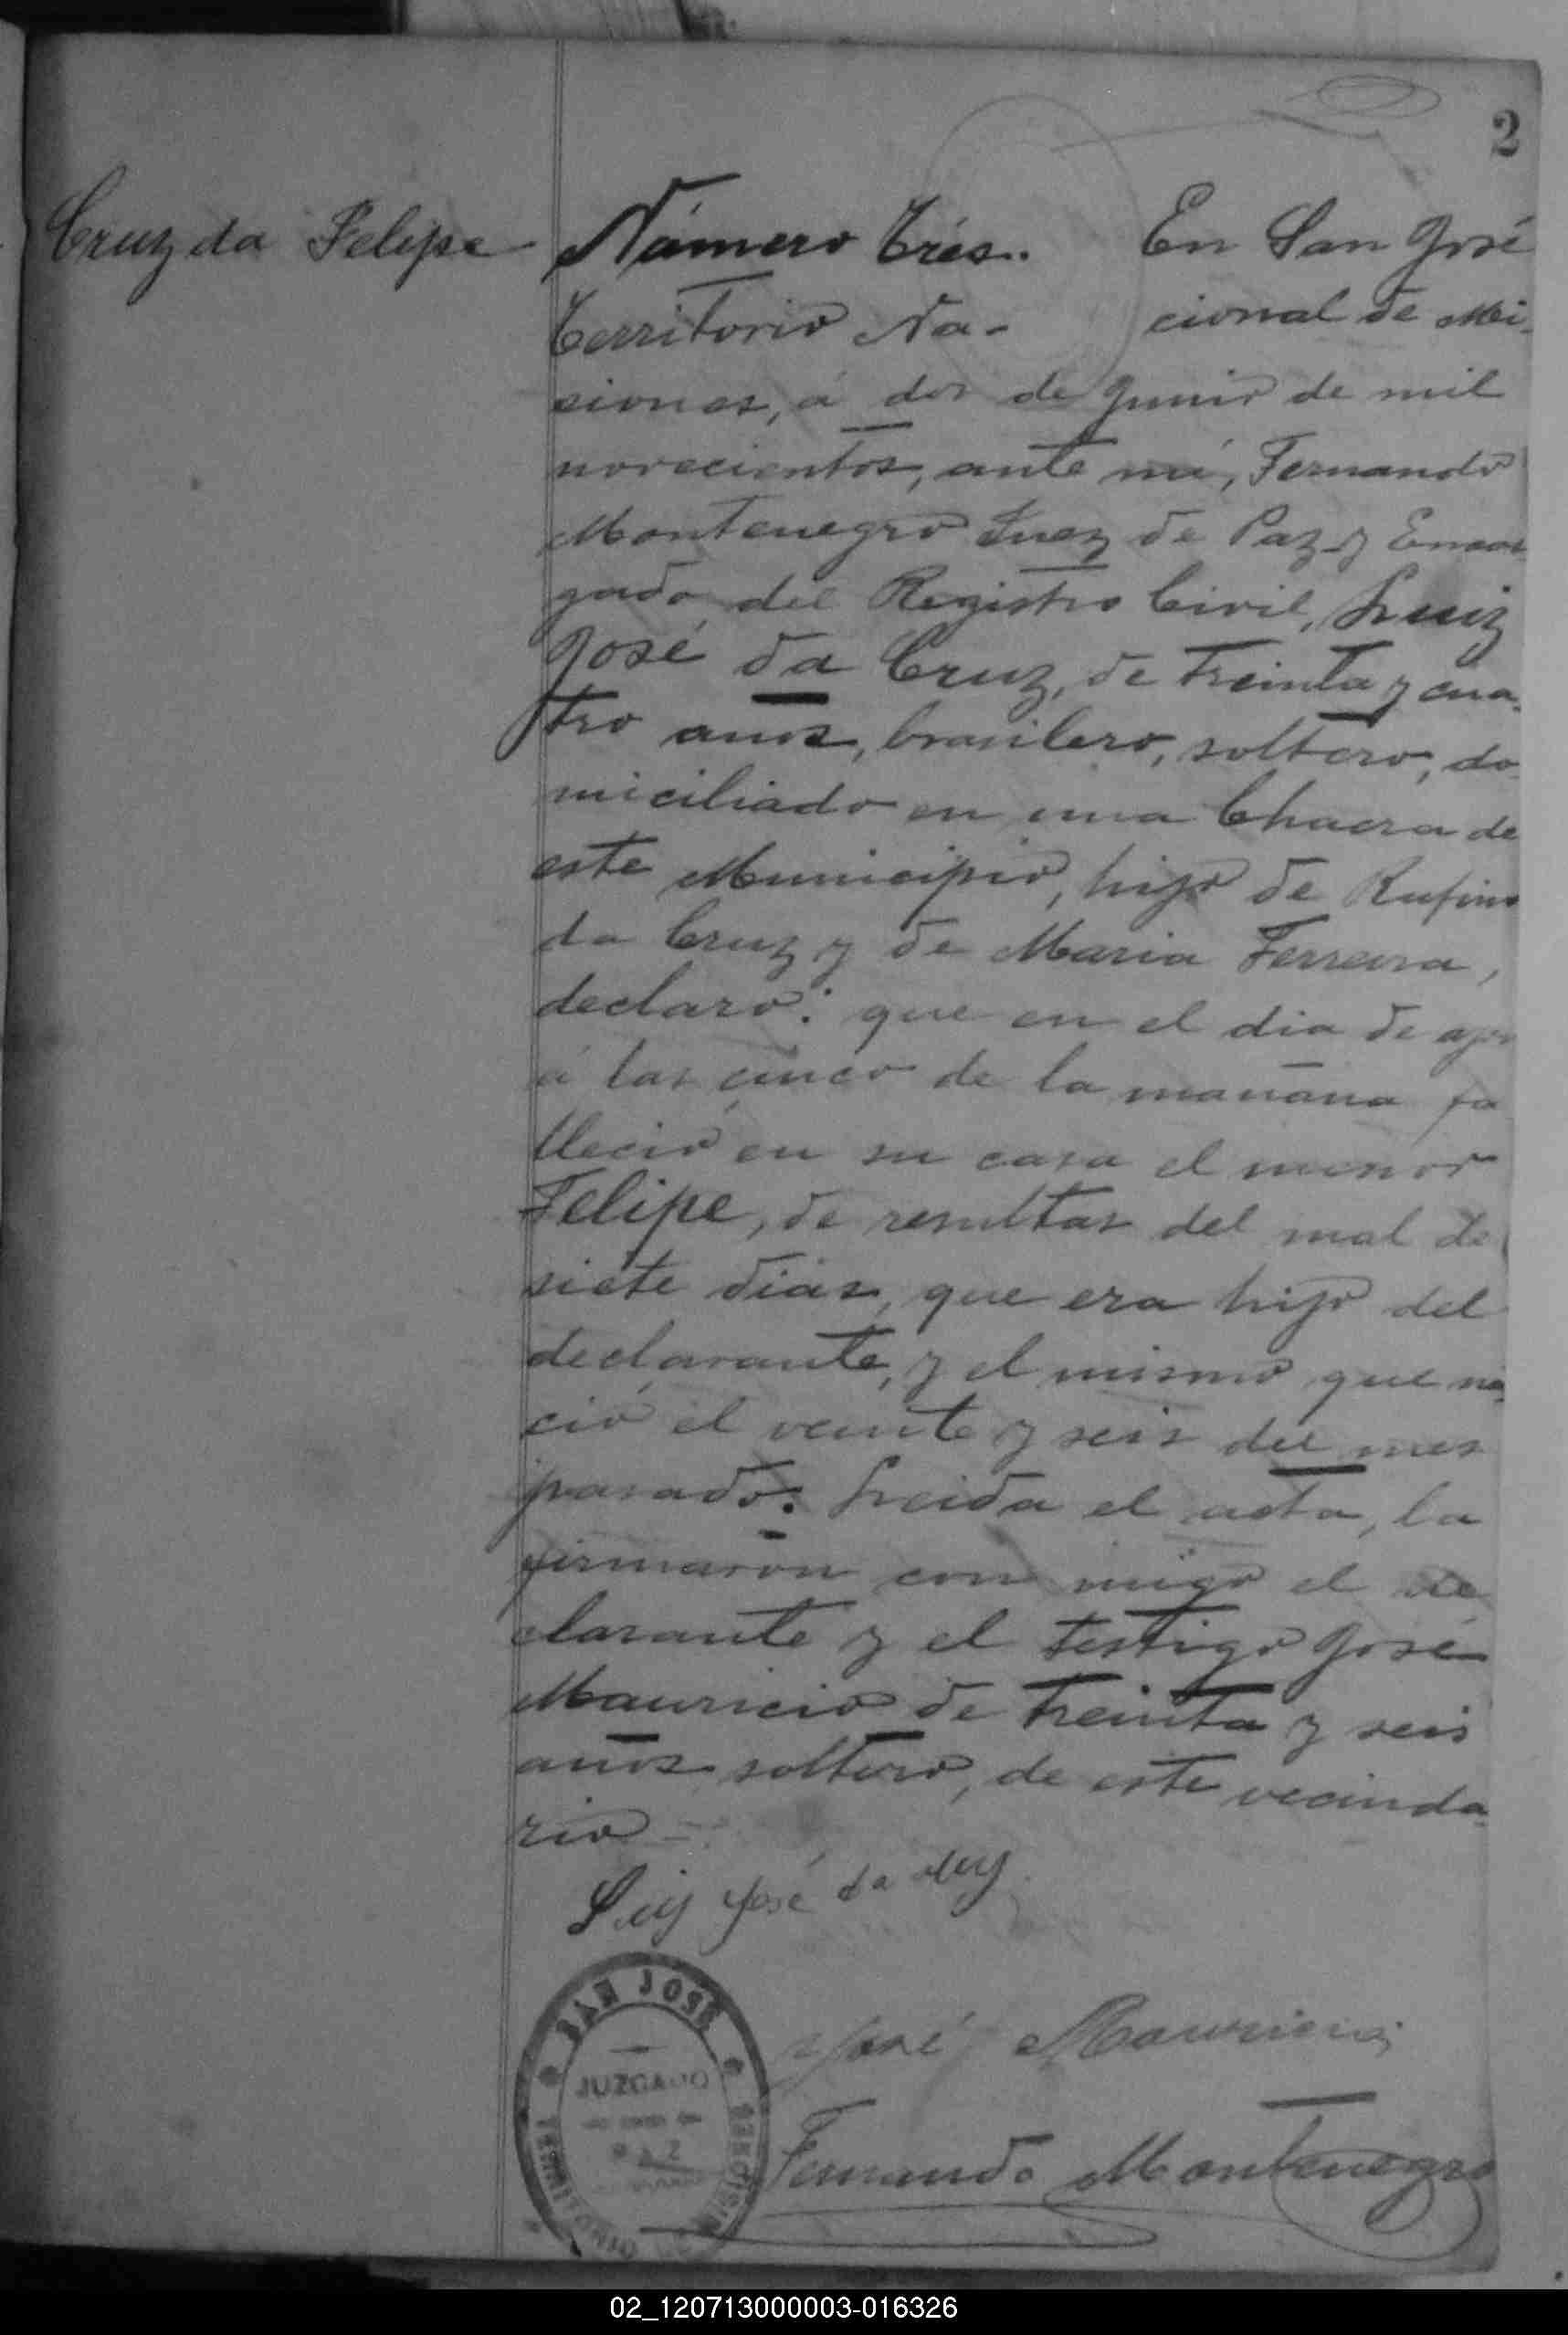 2
Cruz da Felipe
Número Trés. En San José
Territorio Na- cional de Mi-
siones, á dos de Junio de mil
novecientos, ante mi, Fernando
Montenegro Juez de Paz y Encar
gado del Registro Civil, Luiz
José da Cruz, de treinta y cua-
tro anos, brasilero, soltero, do-
miciliado en una Chacra de
este Municipio, hijo de Rufino
da Cruz y de Maria Ferreira,
declaro: que en el dia de
á las cinco de la mañana fa
lleció en su casa el menor
Felipe, de resultas del mal de
siete dias, que era hijo del
declarante, y el mismo que na-
ció el veinte y seis del mes
pasado. Leida el acta, la
firmaron con migo el de
clarante y el testigo José
Mauricio de treinta y seis
años soltero, de este vecinda-
rio
José da
José Mauricio
Fernando Montenegro
SAN JOSÉ
JUZGADO
PAZ
TERRITORIO
02_120713000003-016326